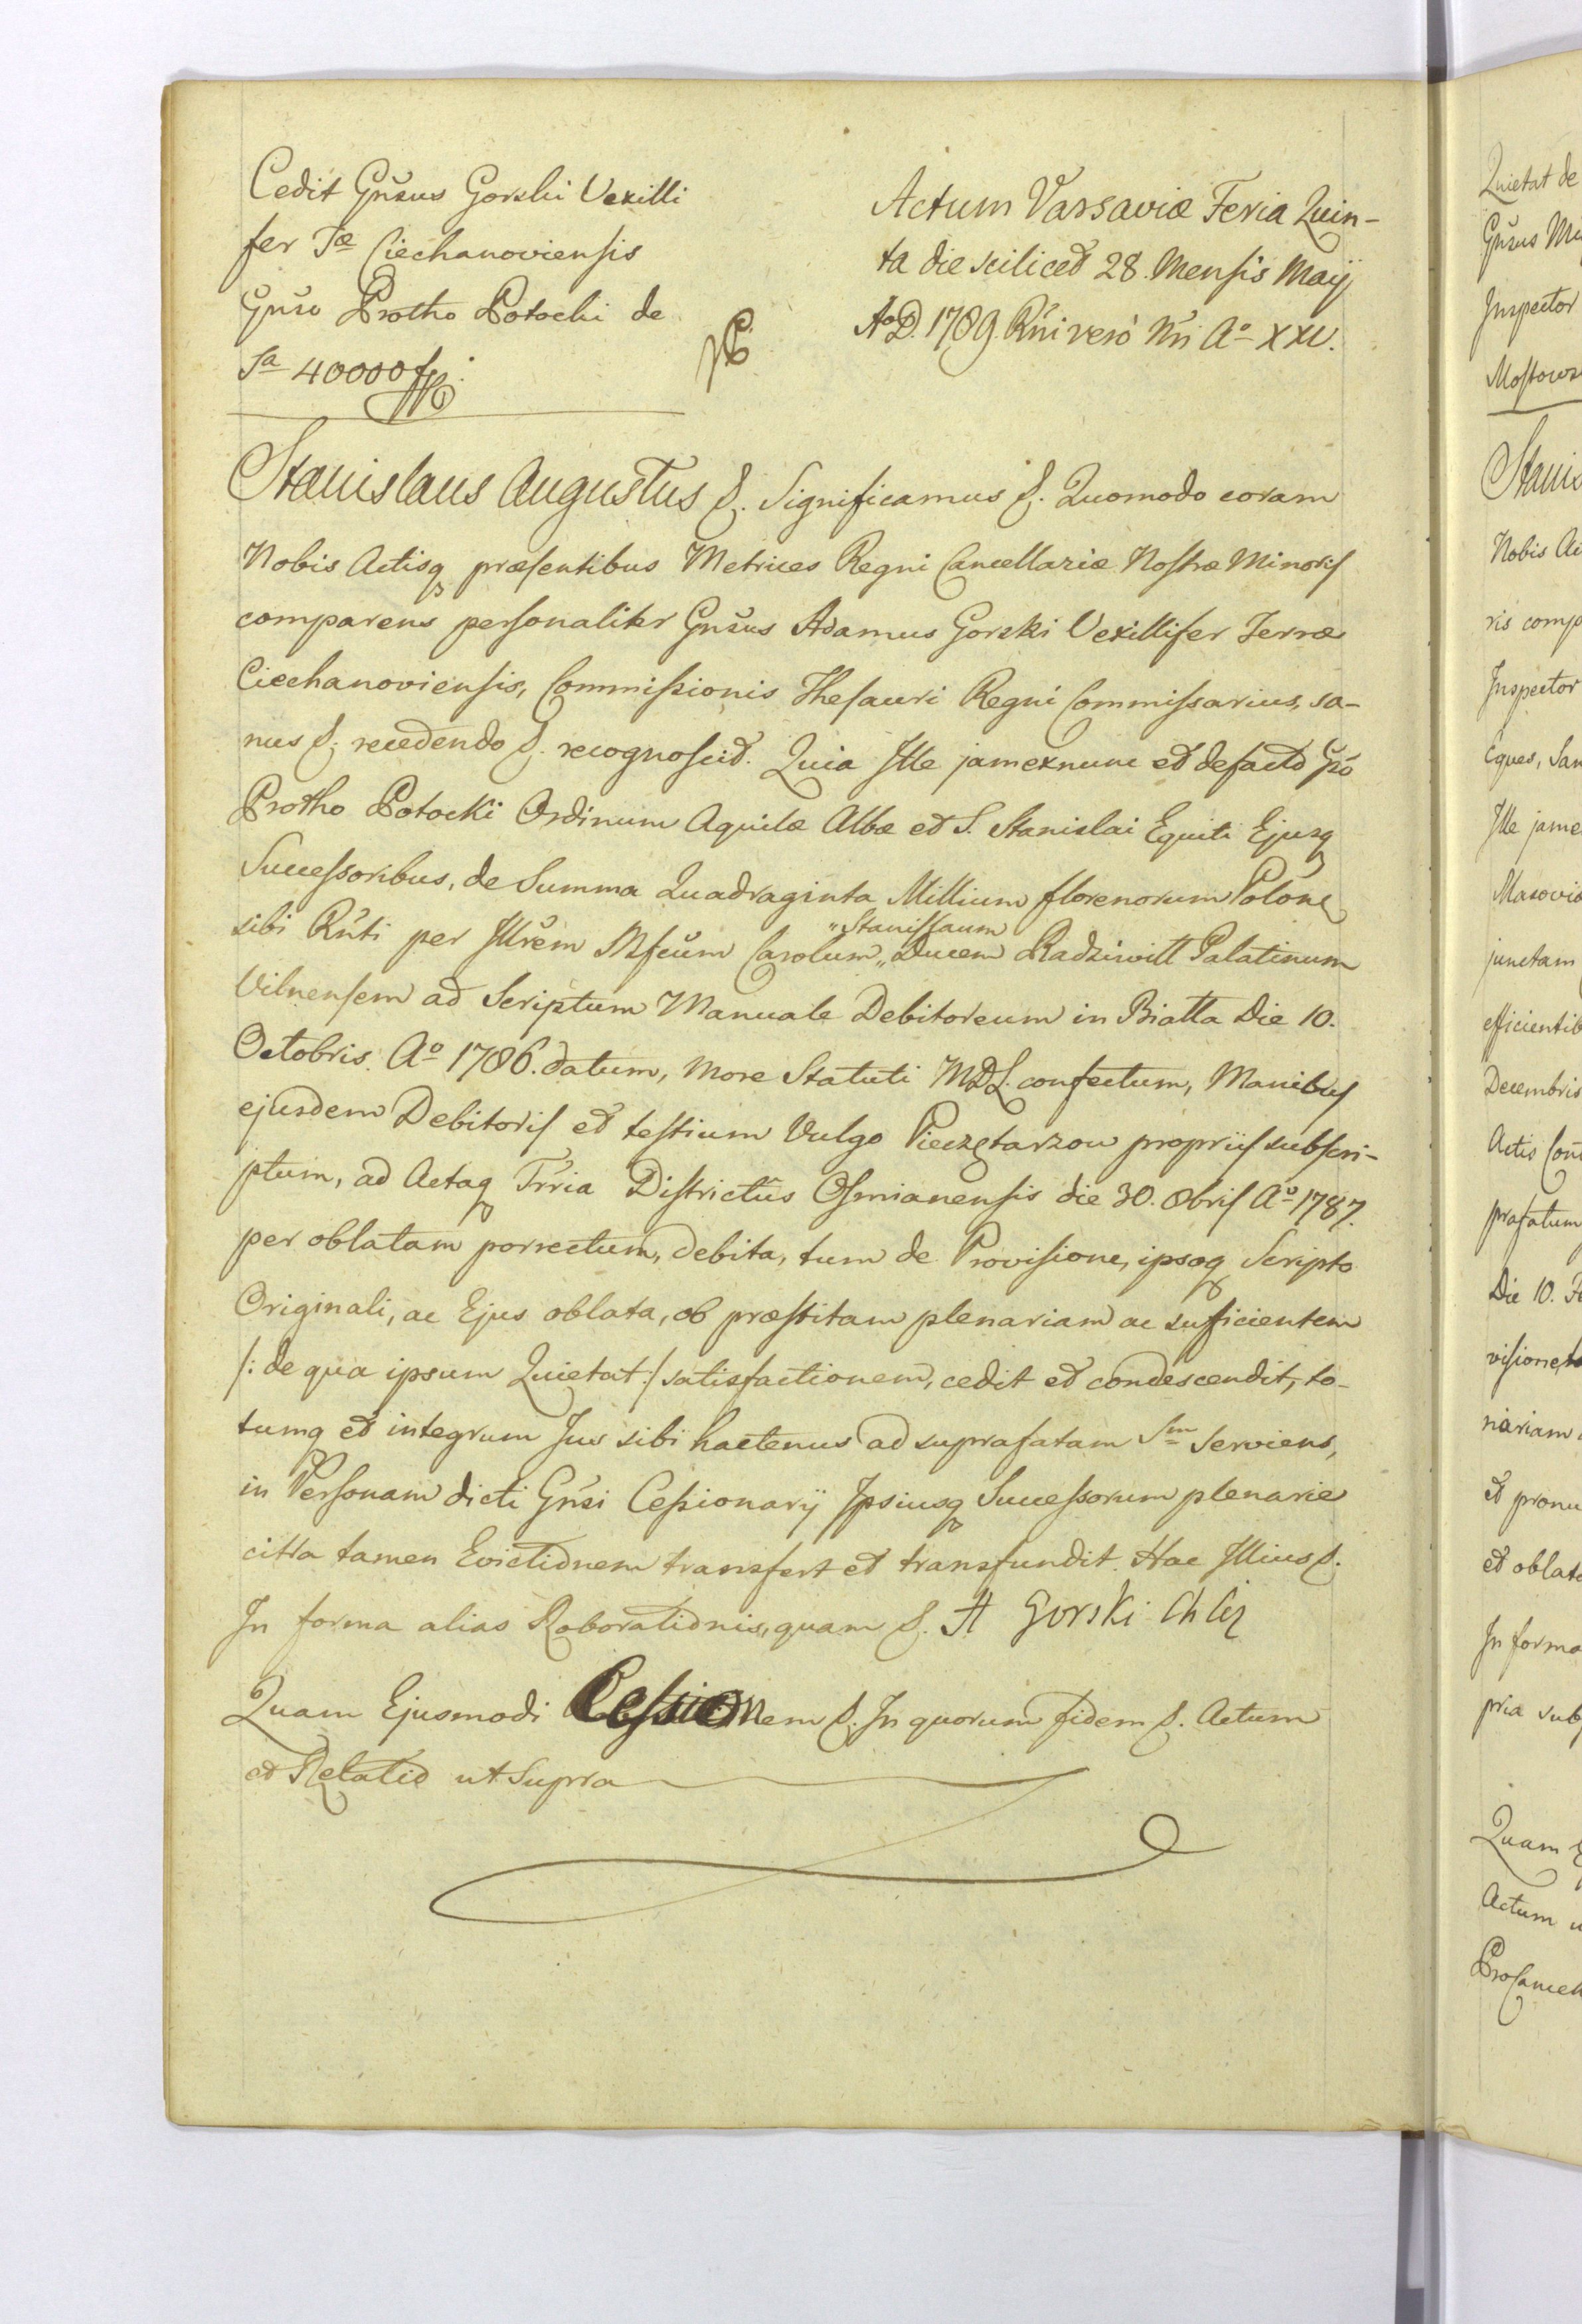 Cedit Gnsus Gorski Vexilli
fer Tæ Ciechanoviensis
Gnso Protho Potocki de
Sa 40000 f.
Actum Varsaviæ Feria Quin-
ta die scilicet 28. Mensis Maij
AoD. 1789. Rni vero Nri Ao XXV.
Stanislaus Augustus &. Significamus &. Quomodo coram
Nobis Actisq præsentibus Metrices Regni Cancellariæ Nostræ Minoris
comparens personaliter Gnsus Adamus Gorski Vexillifer Terræ
Ciechanoviensis, Commissionis Thesauri Regni Commissarius, sa-
nus &. recedendo &. recognoscit. Quia Ille jam ex nunc et de facto Gso
Protho Potocki Ordinum Aquilæ Albæ et S. Stanislai Equiti Ejusq
Successoribus, de Summa Quadraginta Millium florenorum Polon
"Stanislaum
sibi Rnti per Illrem Mfcum Carolum „ Ducem Radziwill Palatinum
Vilnensem ad Scriptum Manuale Debitoreum in Bialla Die 10.
Octobris. Ao 1786. datum, More Statuti MDL. confectum, Manibus
ejusdem Debitoris et testium Vulgo Pieczętarzow propriis subscri-
ptum, ad Actaq Trria Districtus Osmianensis die 30. 8bris Ao 1787.
per oblatam porrectum, debita, tum de Provisione, ipsoq Scripto
Originali, ac Ejus oblata, ob præstitam plenariam ac suficientem
/: de qua ipsum Quietat :/ satisfactionem, cedit et condescendit, to-
tumq et integrum Jus sibi hactenus ad suprafatam Sm Serviens,
in Personam dicti Gnsi Cessionarij Ipsiusq Successorum plenarie
citra tamen Evictionem transfert et transfundit. Hac Illius &.
In forma alias Roborationis, quam &. A Gorski Ch Cie
Quam Ejusmodi Cessionem &. In quorum fidem &. Actum
et Relatio ut Supra
Quietat de
Gnsus
Inspector
Stanis
Nobis
ris comp
Inspector
Eques, San
Ille jam
Masoviæ
junctam
efficientib
Decembris
Actis
præfatum
Die 10.
visione,
nariam
et
et oblata
In forma
pria sub
Quam
Actum